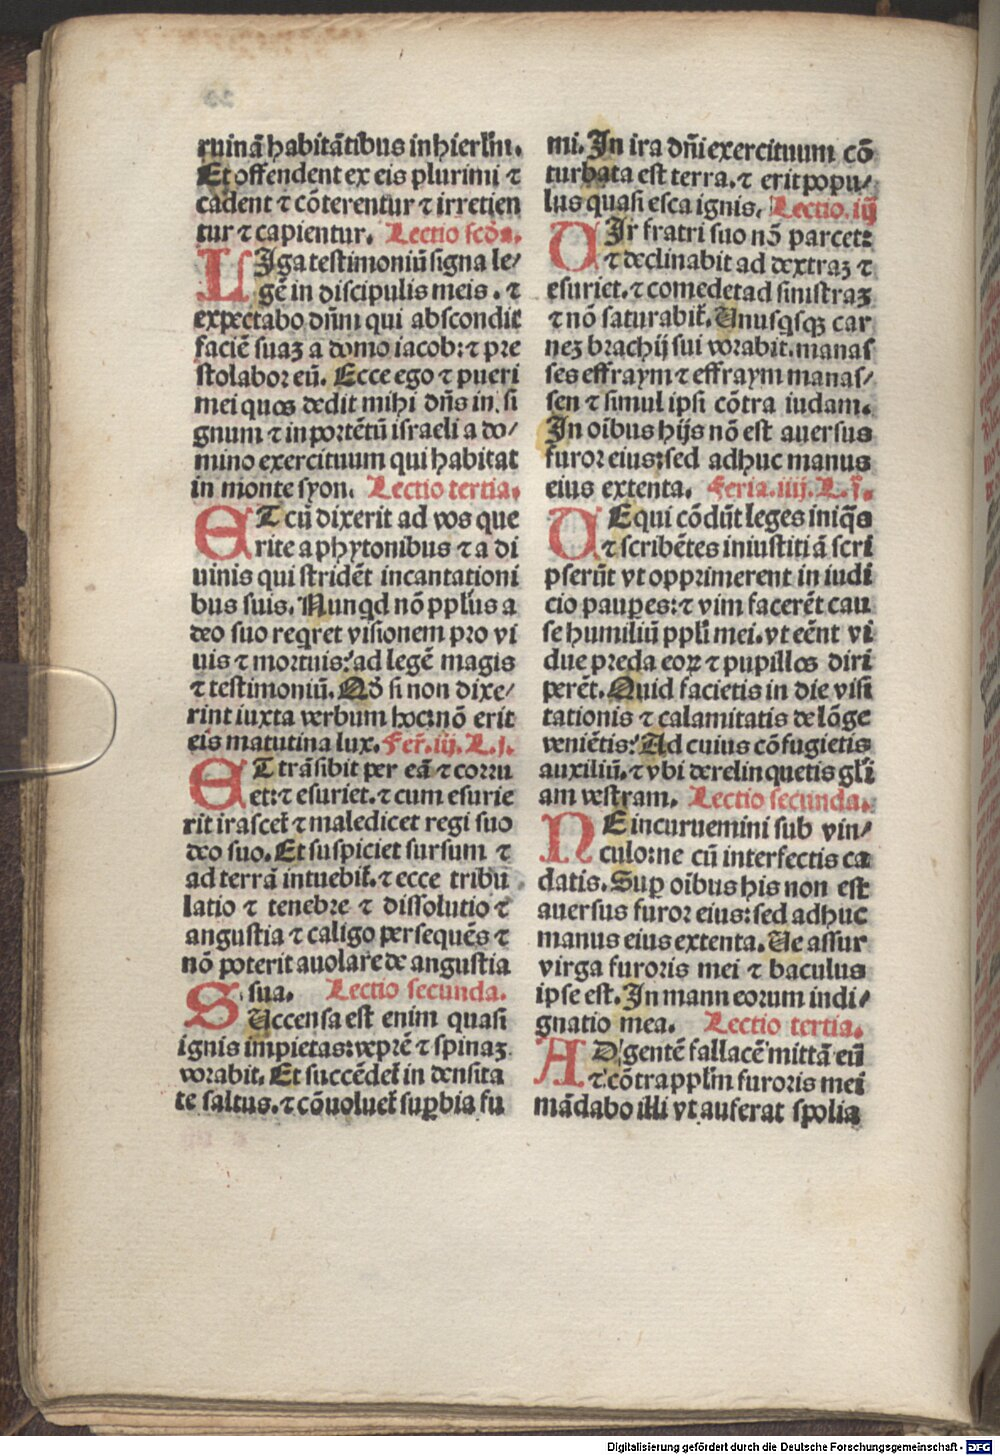 ruinā habitātibus in hierłm.
Et offendent ex eis plurimi ⁊
cadent ⁊ cōterentur ⁊ irretien
tur ⁊ capientur. Lectio scďa.
LIga testimoniū signa le/
gē in discipulis meis. ⁊
expectabo dn̄m qui abscondit
faciē suaꝫ a domo iacob: ⁊ pre
stolabor eū. Ecce ego ⁊ pueri
mei quos dedit mihi dn̄s in si
gnum ⁊ in portētū israeli a do/
mino exercituum qui habitat
in monte syon. Lectio tertia.
ET cū dixerit ad vos que
rite a phytonibus ⁊ a di
uinis qui stridēt incantationi
bus suis. Nunqd nō ppłus a
deo suo reqret visionem pro vi
uis ⁊ mortuis: ad legē magis
⁊ testimoniū. Qď si non dixe/
rint iuxta verbum hoc: nō erit
eis matutina lux. Fer̄. iij. L. j.
ET trāsibit per eā ⁊ corru
et: ⁊ esuriet. ⁊ cum esurie
rit irascet̄ ⁊ maledicet regi suo
deo suo. Et suspiciet sursum ⁊
ad terrā intuebit̄. ⁊ ecce tribu
latio ⁊ tenebre ⁊ dissolutio ⁊
angustia ⁊ caligo persequēs ⁊
nō poterit auolare de angustia
sua. Lectio secunda.
SUccensa est enim quasi
ignis impietas: veprē ⁊ spinaꝫ
vorabit. Et succēdet̄ in densita
te saltus. ⁊ cōuoluet̄ supbia fu
mi. In ira dn̄i exercituum cō
turbata est terra. ⁊ erit popu/
lus quasi esca ignis. Lectio. iij
VIr fratri suo nō parcet:
⁊ declinabit ad dextraꝫ ⁊
esuriet. ⁊ comedet ad sinistraꝫ
⁊ nō saturabit̄. Unusqsqꝫ car
neꝫ brachij sui vorabit. manas
ses effraym ⁊ effraym manas/
sen ⁊ simul ipsi cōtra iudam.
In oībus hijs nō est auersus
furor eius: sed adhuc manus
eius extenta. Feria. iiij. L. j.
VE qui cōdūt leges iniqs
⁊ scribētes iniustitiā scri
pserūt vt opprimerent in iudi
cio paupes: ⁊ vim facerēt cau
se humiliū ppłi mei. vt eēnt vi
due preda eoꝝ ⁊ pupillos diri
perēt. Quid facietis in die visi
tationis ⁊ calamitatis de lōge
veniētis: Ad cuius cōfugietis
auxiliū. ⁊ vbi derelinquetis głi
am vestram. Lectio secunda.
NE incuruemini sub vin/
culo: ne cū interfectis ca
datis. Sup oībus his non est
auersus furor eius: sed adhuc
manus eius extenta. Ue assur
virga furoris mei ⁊ baculus
ipse est. In mann eorum indi/
gnatio mea. Lectio tertia.
AD gentē fallacē mittā eū
⁊ cōtra ppłm furoris mei
mādabo illi vt auferat spolia
Digitalisierung gefördert durch die Deutsche Forschungsgemeinschaft - DFG